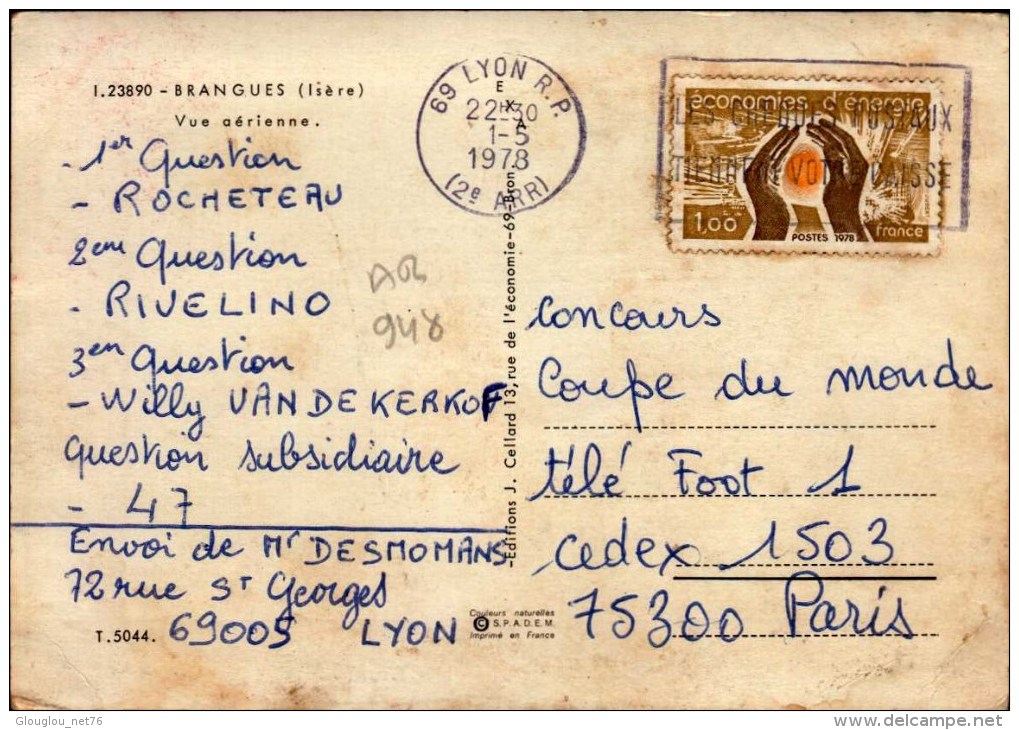 I.23890 - BRANGUES (Isère)
Vue aérienne.
- 1er Question
- ROCHETEAU
2eme Question
- RIVELINO
3em Question
- Willy VANDEKERKOF
Question subsidiaire
- 47
Envoi de Mr DESMOMANS
72 rue St Georges
69005 LYON
T.5044.
948
69 LYON R.P.
22H30
1-5
1978
(2e ARR)
-Editions J. Cellard 13, rue de l'économie-69-Bron.
EXA
Couleurs naturelles
© S.P.A.D.E.M.
Imprimé en France
LES CHEQUES POSTAUX
TIENNENT VOTRE CAISSE
économies d'énergie
1,00
POSTES 1978
france
Concours
Coupe du monde
télé Foot 1
Cedex 1503
75300 Paris
Glouglou_net76
http://www.delcampe.net